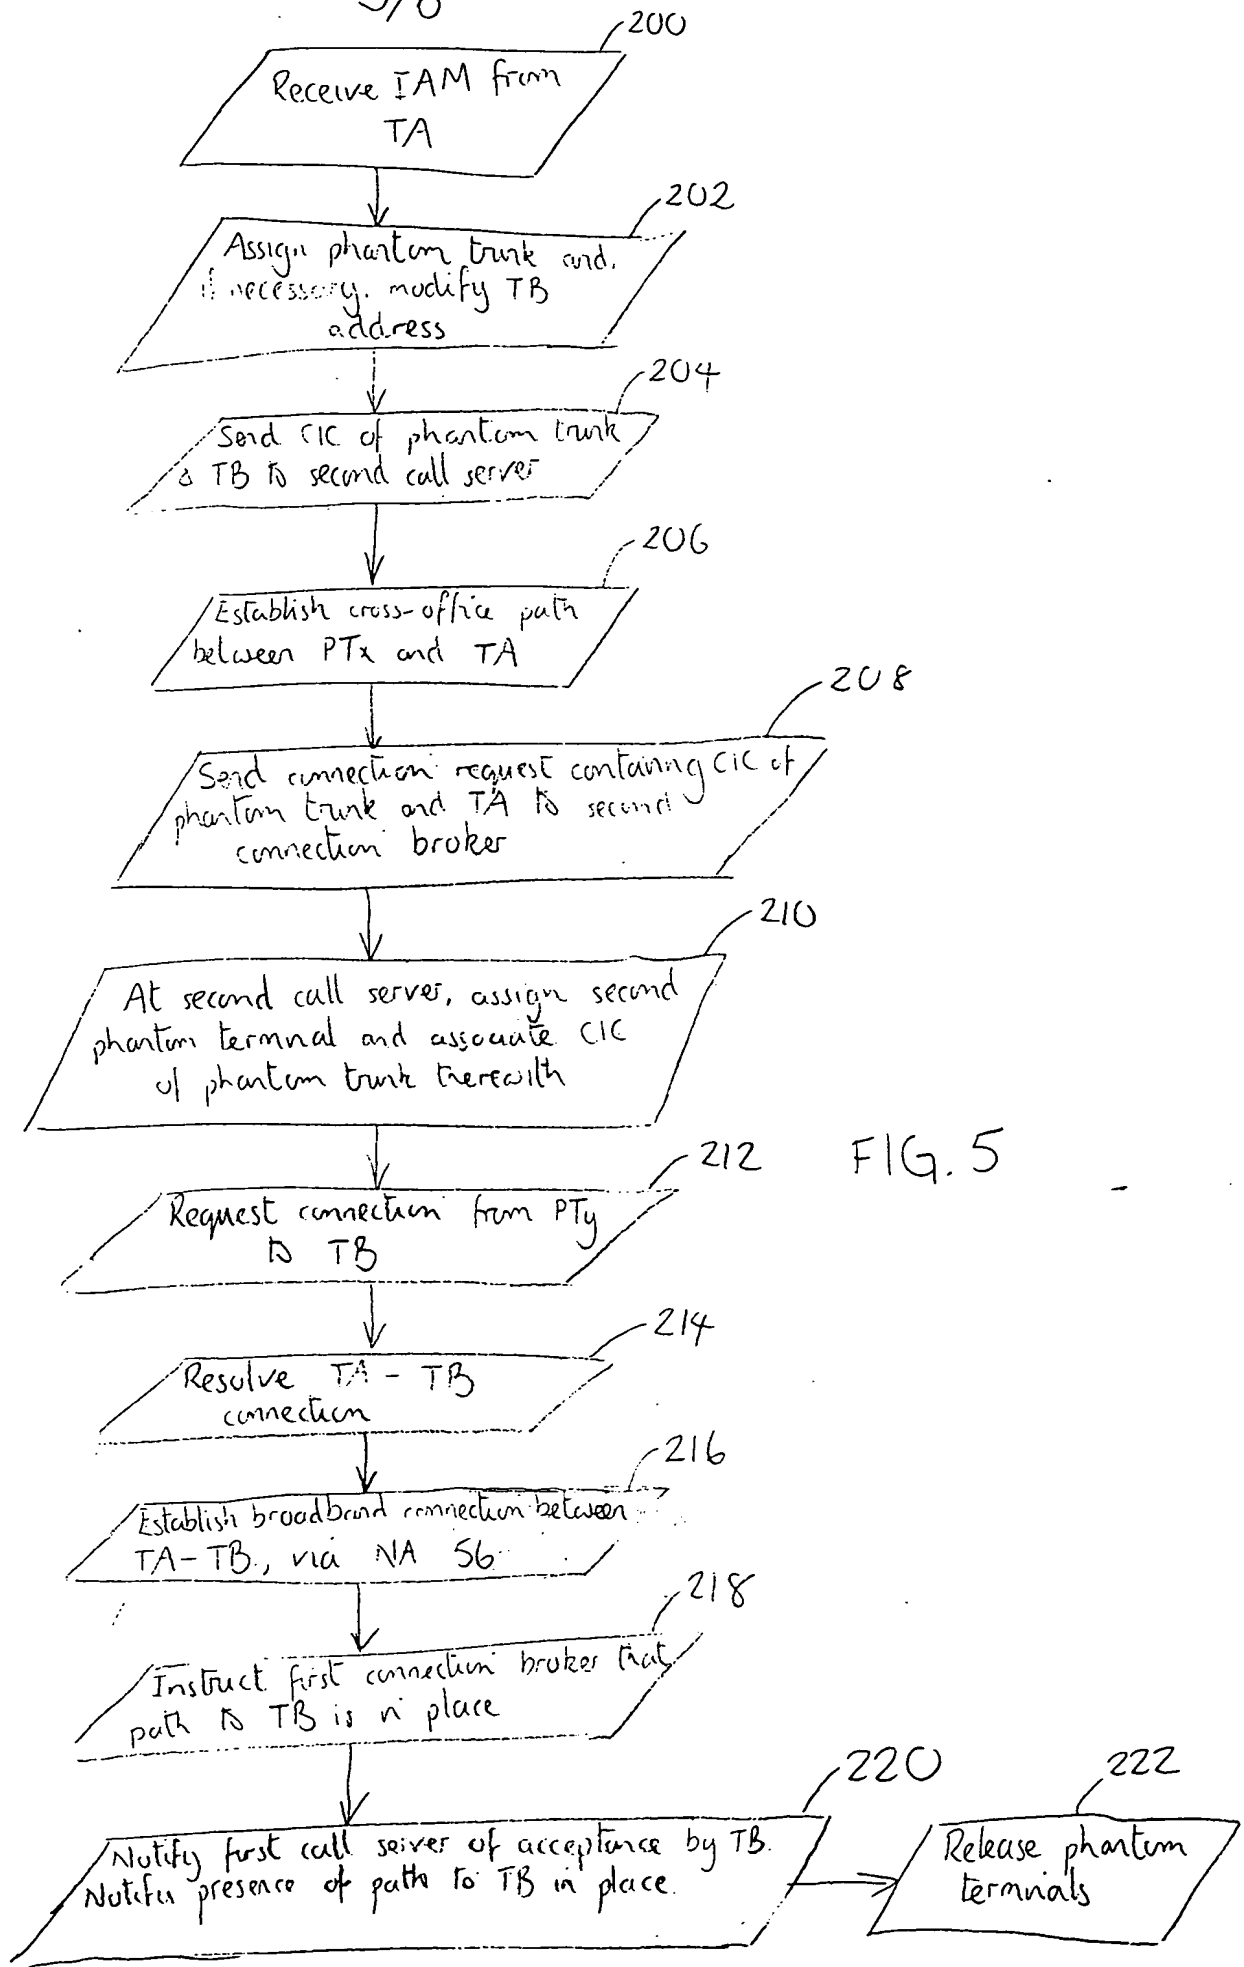 200
Receive IAM from
TA
202
Assign phantom trunk and,
if necessary, modify TB
address
204
Send CIC of phantom trunk
& TB to second call server
206
Establish cross-office path
between PTx and TA
208
Send connection request containing CIC of
phantom trunk and TA to second
connection broker
210
At second call server, assign second
phantom terminal and associate CIC
of phantom trunk therewith
212
Request connection from PTy
to TB
FIG. 5
214
Resolve TA - TB
connection
216
Establish broadband connection between
TA-TB, via NA 56
218
Instruct first connection broker that
path to TB is in place
220
Notify first call server of acceptance by TB.
presence of path to TB in place.
222
Release phantom
terminals